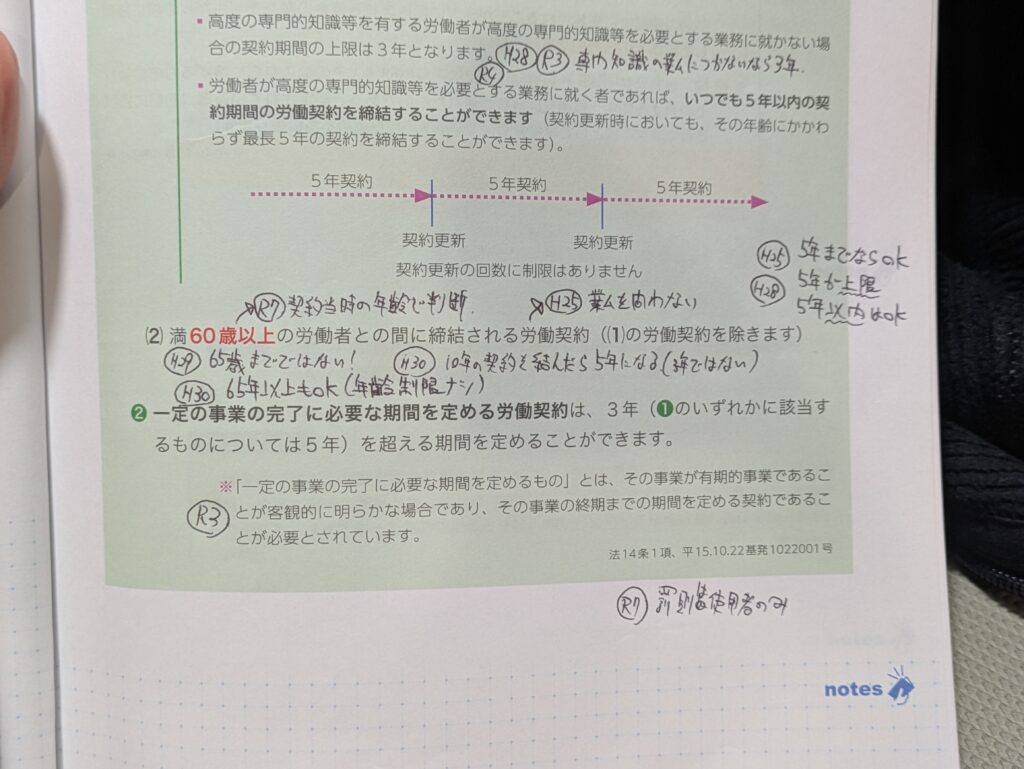 ▪高度の専門的知識等を有する労働者が高度の専門的知識等を必要とする業務に就かない場
合の契約期間の上限は３年となります。
H28 R3 専門知識の業ムにつかないなら3年.
R4
▪労働者が高度の専門的知識等を必要とする業務に就く者であれば、いつでも５年以内の契
約期間の労働契約を締結することができます（契約更新時においても、その年齢にかかわ
らず最長５年の契約を締結することができます）。
５年契約 ５年契約 ５年契約
契約更新 契約更新
契約更新の回数に制限はありません
H25 5年までならok
H28 5年が上限
5年以内はok
R7 契約当時の年齢で判断. H25 業ムを問わない
(2) 満60歳以上の労働者との間に締結される労働契約（(1)の労働契約を除きます）
H29 65歳までではない! H30 10年の契約を結んだら5年になる.(3年ではない)
H30 65年以上もok(年齢制限ナシ)
❷ 一定の事業の完了に必要な期間を定める労働契約は、３年（❶のいずれかに該当す
るものについては５年）を超える期間を定めることができます。
※「一定の事業の完了に必要な期間を定めるもの」とは、その事業が有期的事業であるこ
とが客観的に明らかな場合であり、その事業の終期までの期間を定める契約であるこ
とが必要とされています。
R3
法14条1項、平15.10.22基発1022001号
R7 罰則は使用者のみ
notes